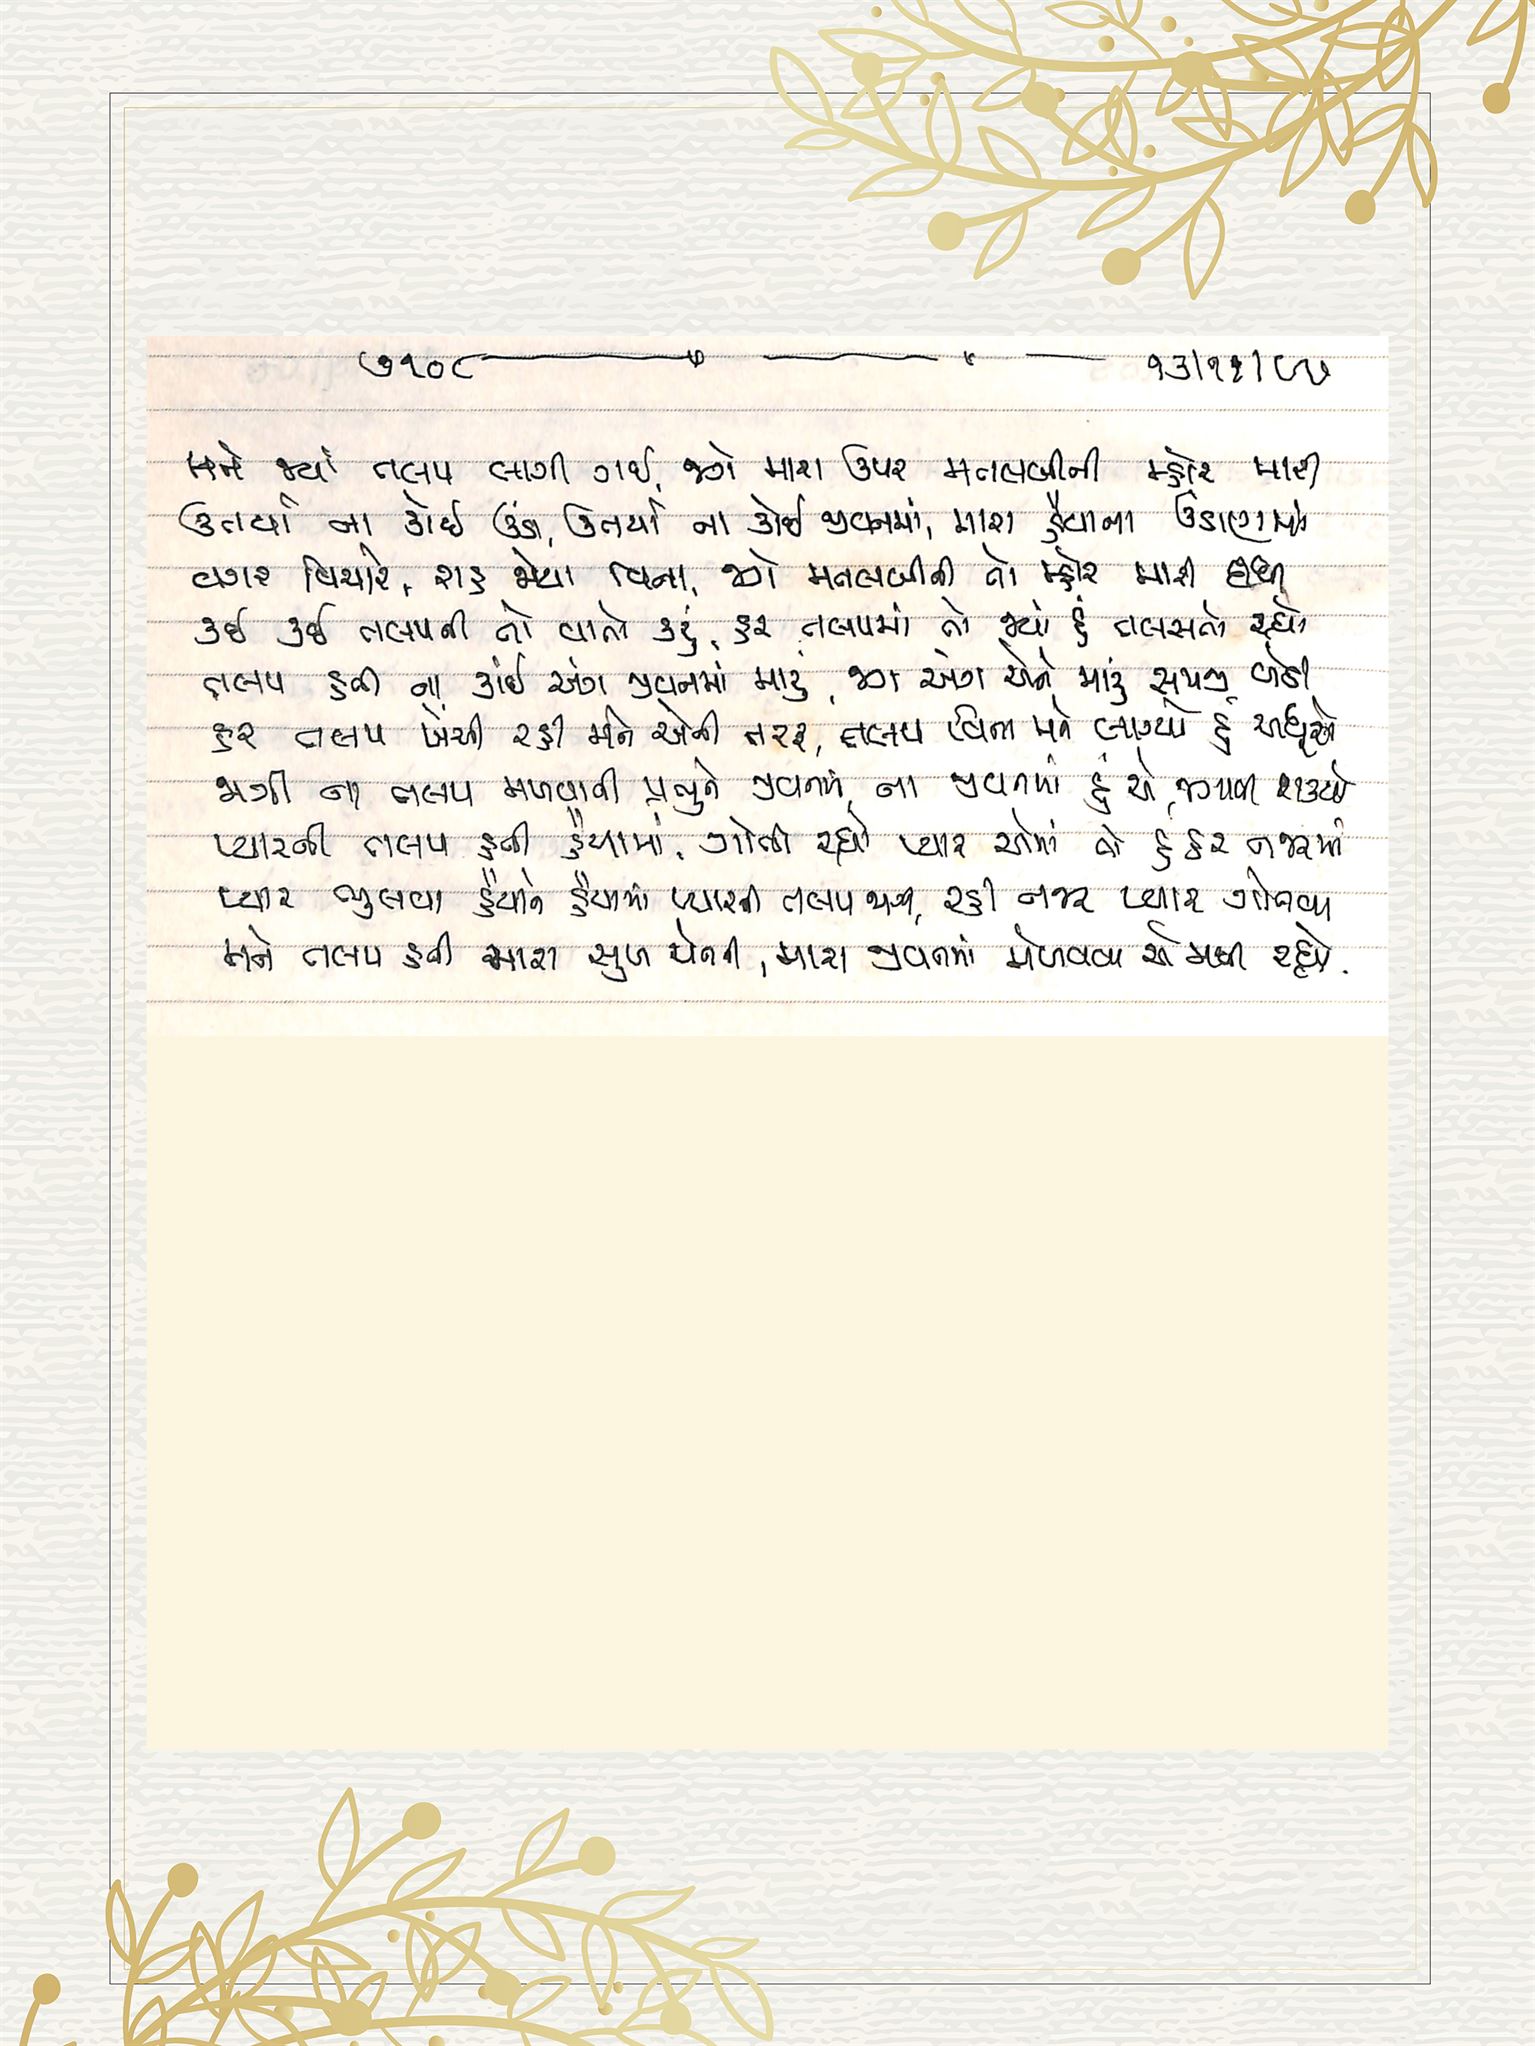 ૭૧૦૮ ૧૩/૧૧/૯૭
મને જ્યાં તલપ લાગી ગઈ, જગે મારા ઉપર મતલબીની મહોર મારી
ઉતર્યા ના કોઈ ઊંડા, ઉતર્યા ના કોઈ જીવનમાં, મારા હૈયાના ઊંડાણમાં
વગર વિચારે, રાહ જોયા વિના, જગે મતલબીની તો મહોર મારી દીધી
કઈ કઈ તલપની તો વાતો કહું, હર તલપમાં તો જ્યાં હું તલસતો રહ્યો
તલપ હતી ના કાંઈ અંગ જીવનમાં મારું, જગ અંગ એને મારું સમજી બેઠી
હર તલપ ખેંચી રહી મને એની તરફ, તલપ વિના મને લાગ્યો હું અધૂરો
જાગી ના તલપ મળવાની પ્રભુને જીવનમાં, ના જીવનમાં હું એ જગાવી શક્યો
પ્યારની તલપ હતી હૈયામાં, ગોતી રહ્યો પ્યાર એમાં તો હું હર નજરમાં
પ્યાર ભુલવા હૈયાને હૈયામાં પ્યારની તલપ જાગી, રહી નજર પ્યાર ગોતવા
મને તલપ હતી મારા સુખ ચેનની, મારા જીવનમાં મેળવવા એ મથી રહ્યો.